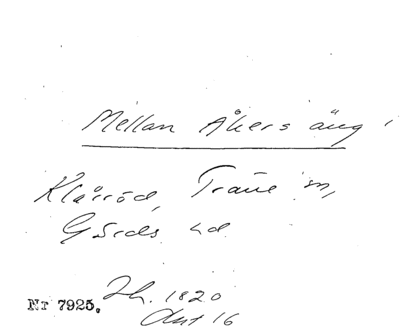 Mellan Åkers äng
Klåröd, Träne sn,
Gärds hd
Nr 7925. Jh. 1820
Akt 16